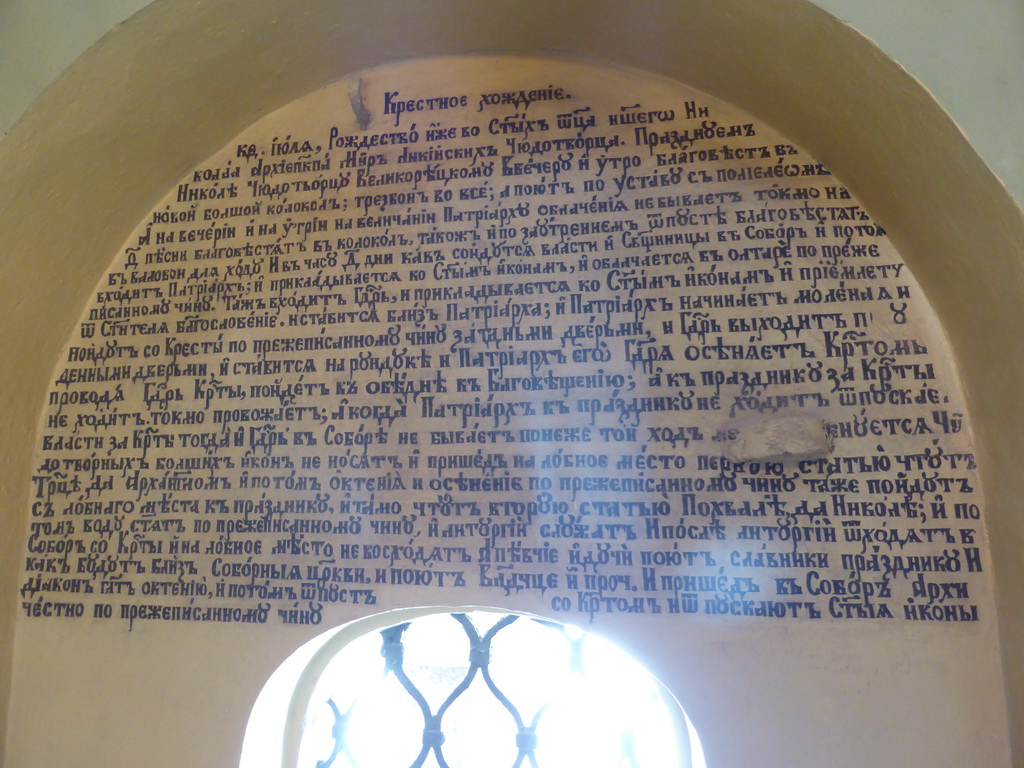 Крестное хожденіе.
кв. іюля, Рождество иже во Ст҃ыхъ ѿц҃а нш҃егѡ Ни
колаа Архіепкпа Мѵръ Ликійскихъ Чюдотворца. Празднуемъ
Николѣ Чюдотворцу Великорѣцкому Ввечеру и утро благовѣстъ въ
новой болшой колоколъ; трезвонъ во все; а поютъ по уставу съ поліелеомъ
А на вечеріи и на утріи на величаніи Патріарху облаченія не бываетъ токмо на
Д҃ пѣсни благовѣстятъ въ колоколъ, такожъ и по заутреннемъ ѿпустѣ благовѣстятъ
въ валовои для ходу И въ часу Д҃ дни какъ сойдутся власти и Свщ҃нницы въ Соборъ и потом
входитъ Патріархъ; и прикладывается ко Ст҃ымъ иконамъ, и облачается въ олтарѣ по преже
писанному чину. Тажъ входитъ Гд҃рь, и прикладывается ко Ст҃ымъ иконамъ и пріемлету
ѿ Ст҃ителя багословеніе. и ставится близъ Патріарха; и Патріархъ начинаетъ моленая и
пойдутъ со Кресты по прежеписанному чину западными дверьми, и Гд҃рь выходитъ п у
денными дверьми, и ставится на рундукѣ и Патріархъ его Гд҃ря осѣняетъ Кр҃томъ
проводя Гд҃рь Кр҃ты, пойдетъ къ обѣднѣ въ Баговѣщенію; а къ празднику за Кр҃ты
не ходитъ. токмо провожаетъ; а когда Патріархъ къ празднику не ходитъ ѿпускае.
власти за Кр҃ты тогда и Гд҃рь въ Соборѣ не бываетъ понеже той ходъ не нуется Чю
дотворныхъ болшихъ иконъ не носятъ и пришедъ на лобное мѣсто первою статью чтутъ
Трц҃ѣ, да Архаг҃гломъ и потомъ октенія и осѣненіе по прежеписанному чину таже пойдутъ
съ лобнаго мѣста къ празднику, и тамо чтутъ вторую статью Похвалѣ, да Николѣ; и по
томъ воду ст҃атъ по прежеписанному чину, и литоргіи служатъ И послѣ литоргіи ѿходятъ в
Соборъ со Кр҃ты И на лобное мѣсто не восходятъ А пѣвчіе идучи поютъ, славники празднику И
какъ будутъ близъ Соборныя цр҃кви, и поютъ Влд҃чце и проч. И пришедъ въ Соборъ Архи
діаконъ гл҃тъ октенію, и потомъ ѿпустъ
со Кр҃томъ и ѿпускаютъ Ст҃ыя иконы
честно по прежеписанному чину